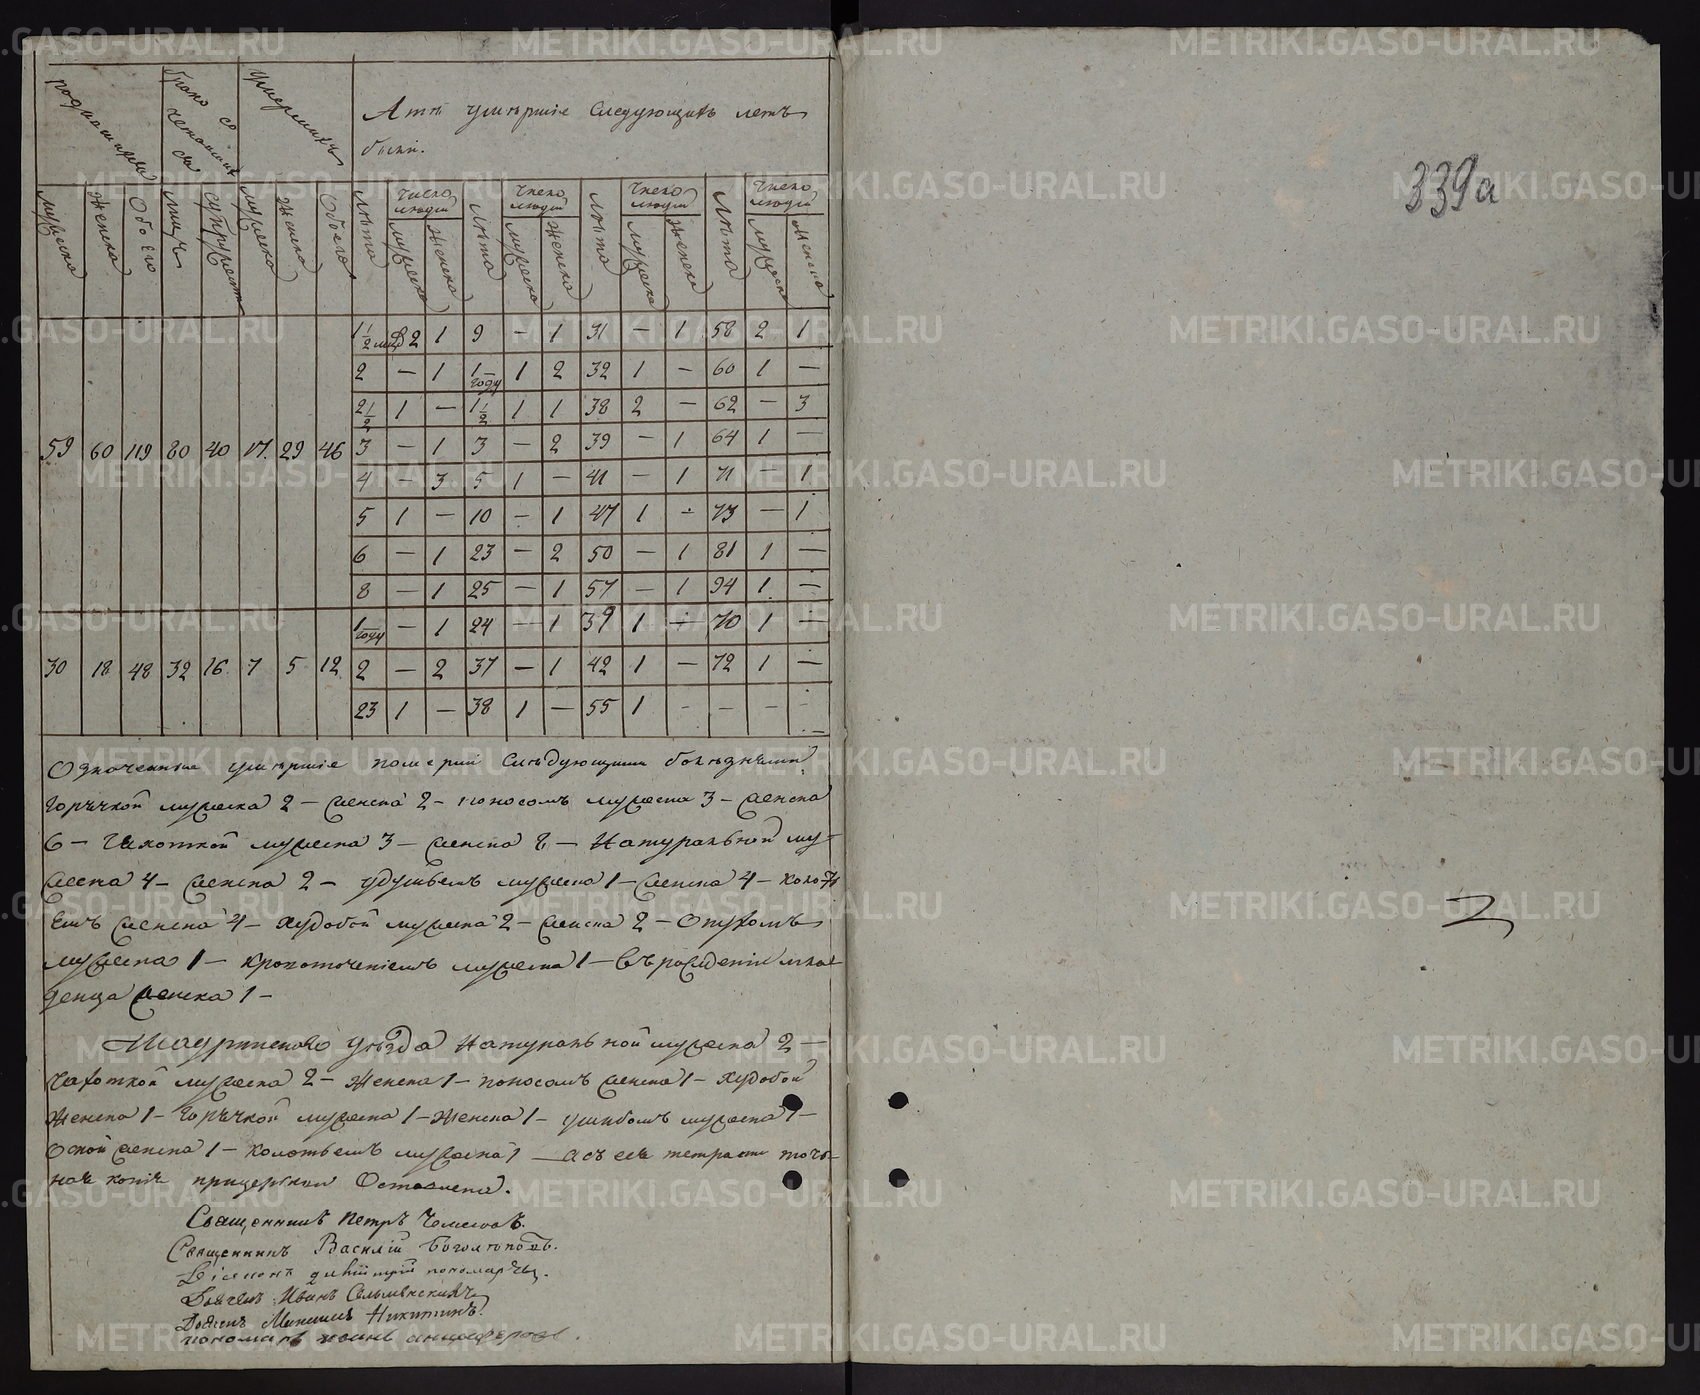 родившихся
брако со четавших ся
умерших
А тѣ умѣршіе следующихъ летъ
были.
мужеска женска обоего лицъ супружест мужеска женска обоего лѣта число людей лѣта число людей лѣта число людей лѣта число людей
мужеска женска мужеска женска мужеска женска мужеска женска
1 1/2 2 1 9 — 1 31 — 1 58 2 1
2 — 1 1 году 1 2 32 1 — 60 1 —
2 1/2 1 — 1 1/2 1 1 38 2 — 62 — 3
59 60 119 80 40 17 29 46 3 — 1 3 — 2 39 — 1 64 1 —
4 — 3 5 1 — 41 — 1 71 — 1
5 1 — 10 — 1 47 1 — 73 — 1
6 — 1 23 — 2 50 — 1 81 1 —
8 — 1 25 — 1 57 — 1 94 1 —
1 году — 1 24 — 1 39 1 — 70 1 —
30 18 48 32 16 7 5 12 2 — 2 37 — 1 42 1 — 72 1 —
23 1 — 38 1 — 55 1 — — — —
Означенные умѣршіе померли слѣдующими болѣзньми
горячкой мужеска 2 — женска 2 — поносомъ мужеска 3 — женска
6 — чахоткой мужеска 3 — женска 8 — натуральной му-
жеска 4 — женска 2 — удушьемъ мужеска 1 — женска 4 — колоть
емъ женска 4 — худобой мужеска 2 — женска 2 — опухомъ
мужеска 1 — кровоточеніемъ мужеска 1 — въ рожденіи мла-
денца женска 1 —
Шадринского уѣзда натуральной мужеска 2 —
чахоткой мужеска 2 — женска 1 — поносомъ женска 1 — худобой
женска 1 — горячкой мужеска 1 — женска 1 — ушибомъ мужеска 1 —
оспой женска 1 — колотьемъ мужеска 1 — а съ сей тетрати точ-
ная копія при церкви оставлена.
Священникъ Петръ
Священникъ Василій Боголѣповъ.
Діаконъ Дмитрій Пономаревъ.
Дьячекъ Иванъ
Дьячекъ Никитинъ.
пономарь Анциферовъ.
339а
METRIKI.GASO-URAL.RU